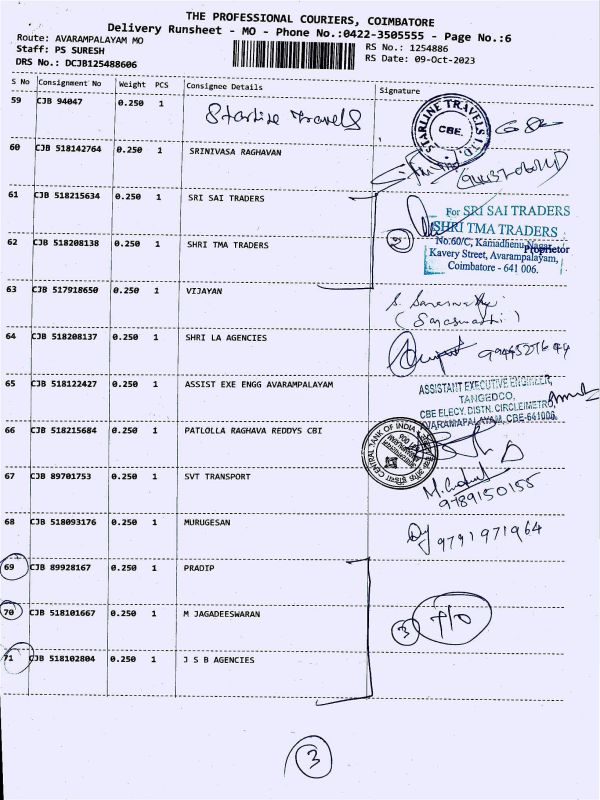 THE PROFESSIONAL COURIERS, COIMBATORE
Delivery Runsheet - MO - Phone No.:0422-3505555 - Page No.:6
Route: AVARAMPALAYAM MO
Staff: PS SURESH
DRS No.: DCJB125488606
RS No.: 1254886
RS Date: 09-Oct-2023
S No Consignment No Weight PCS Consignee Details Signature
59 CJB 94047 0.250 1 Starline Travels
STARLINE TRAVELS
CBE.
60 CJB 518142764 0.250 1 SRINIVASA RAGHAVAN
61 CJB 518215634 0.250 1 SRI SAI TRADERS
For SRI SAI TRADERS
62 CJB 518208138 0.250 1 SHRI TMA TRADERS
SHRI TMA TRADERS
No:60/C, Kamadhenu Nagar,
Proprietor
Kavery Street, Avarampalayam,
Coimbatore - 641 006.
63 CJB 517918650 0.250 1 VIJAYAN
(Saraswathi)
64 CJB 518208137 0.250 1 SHRI LA AGENCIES
65 CJB 518122427 0.250 1 ASSIST EXE ENGG AVARAMPALAYAM
ASSISTANT EXECUTIVE ENGINEER,
TANGEDCO,
CBE ELECY. DISTN. CIRCLE/METRO,
AVARAMAPALAYAM, CBE-641006.
66 CJB 518215684 0.250 1 PATLOLLA RAGHAVA REDDYS CBI
CENTRAL BANK OF INDIA
67 CJB 89701753 0.250 1 SVT TRANSPORT
9789150155
68 CJB 518093176 0.250 1 MURUGESAN
9791971964
69 CJB 89928167 0.250 1 PRADIP
70 CJB 518101667 0.250 1 M JAGADEESWARAN
3
71 CJB 518102804 0.250 1 J S B AGENCIES
3